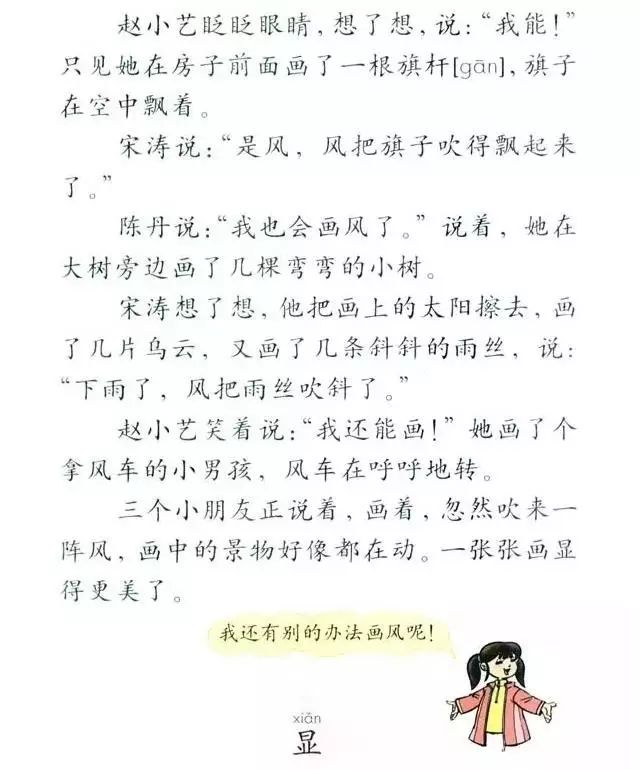 赵小艺眨眨眼睛，想了想，说：“我能！”
只见她在房子前面画了一根旗杆[gān]，旗子
在空中飘着。
宋涛说：“是风，风把旗子吹得飘起来
了。”
陈丹说：“我也会画风了。”说着，她在
大树旁边画了几棵弯弯的小树。
宋涛想了想，他把画上的太阳擦去，画
了几片乌云，又画了几条斜斜的雨丝，说：
“下雨了，风把雨丝吹斜了。”
赵小艺笑着说：“我还能画！”她画了个
拿风车的小男孩，风车在呼呼地转。
三个小朋友正说着，画着，忽然吹来一
阵风，画中的景物好像都在动。一张张画显
得更美了。
我还有别的办法画风呢！
xiǎn
显